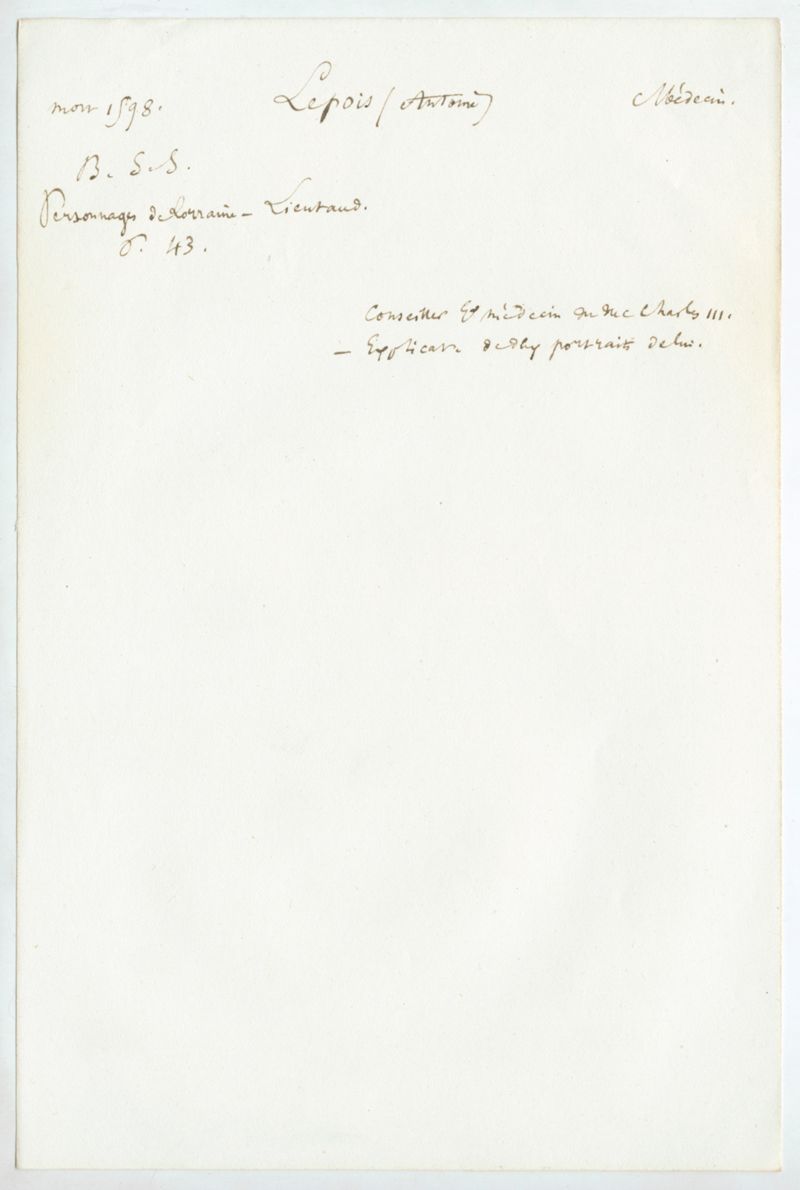 mort 1598. Lepois (Antoine) Médecin.
B. S. S.
Personnages de Lorraine - Lieutaud.
p. 43.
Conseiller et médecin du duc Charles III.
— Explicatn de portraits de lui.